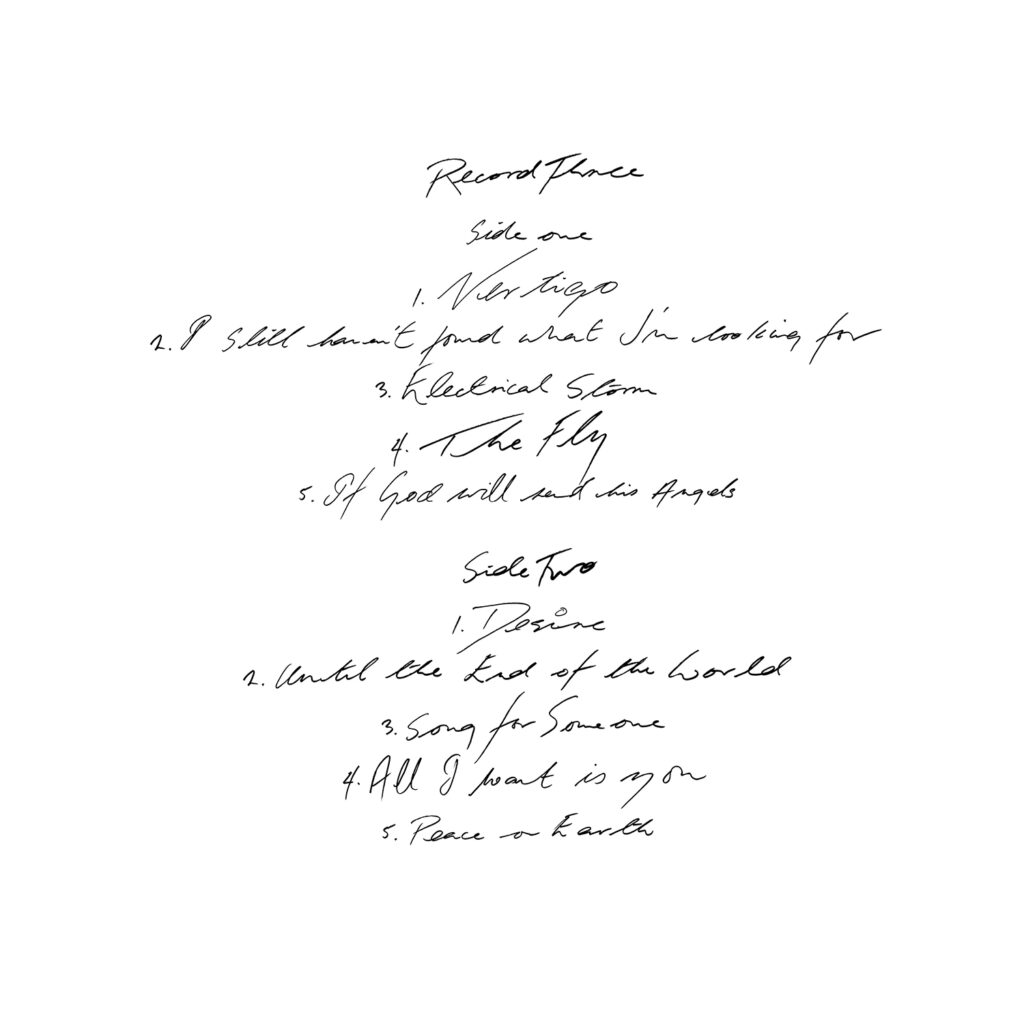 Record Three
Side one
1. Vertigo
2. I still haven't found what I'm looking for
3. Electrical Storm
4. The Fly
5. If God will send his Angels
Side Two
1. Desire
2. Until the End of the World
3. Song for Someone
4. All I want is you
5. Peace on Earth